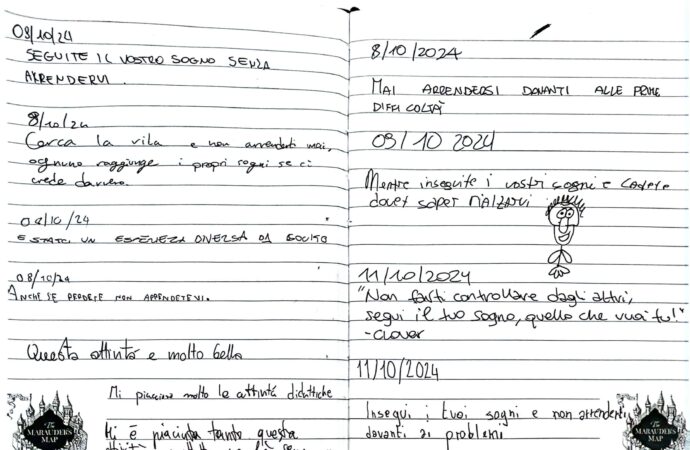 08/10/24
SEGUITE IL VOSTRO SOGNO SENZA
ARRENDERVI.
8/10/24
Cerca la vita e non arrenderti mai,
ognuno raggiunge i propri sogni se ci
crede davvero.
08/10/24
E STATO UN ESPERIENZA DIVERSA DA SOLITO
08/10/24
ANCHE SE PERDETE NON ARRENDETEVI.
Questa attività e molto bella
Mi piaciuto molto le attività didattiche
Mi è piaciuta tanto questa
8/10/2024
MAI ARRENDERSI DAVANTI ALLE PRIME
DIFFICOLTÀ
09/10 2024
Mentre inseguite i vostri sogni e cadete
dovet saper rialzarvi
11/10/2024
"Non farti controllare dagli altri,
segui il tuo sogno, quello che vuoi tu!"
-Clover
11/10/2024
Insegui i tuoi sogni e non arrenderti
davanti ai problemi
The
MARAUDER'S
MAP
The
MARAUDER'S
MAP